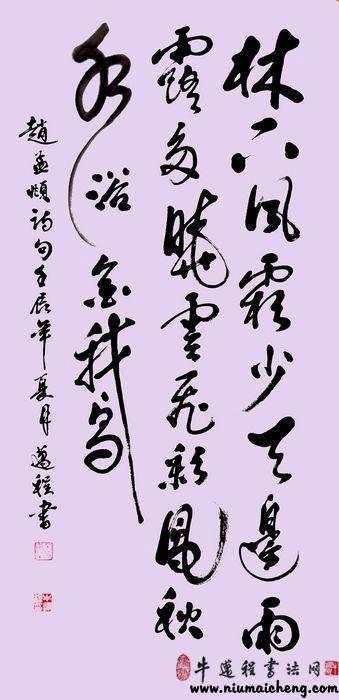 林下風霜少天邊雨
露多曉雲飛彩鳳秋
水浴金鵝
趙孟頫詩句壬辰年夏月邁程書
牛邁程書法网
www.niumaicheng.com